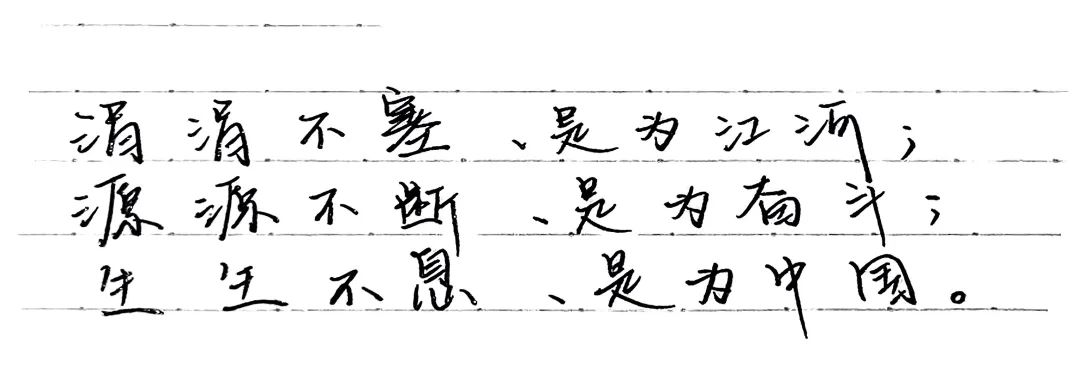 涓涓不塞、是为江河；
源源不断、是为奋斗；
生生不息、是为中国。